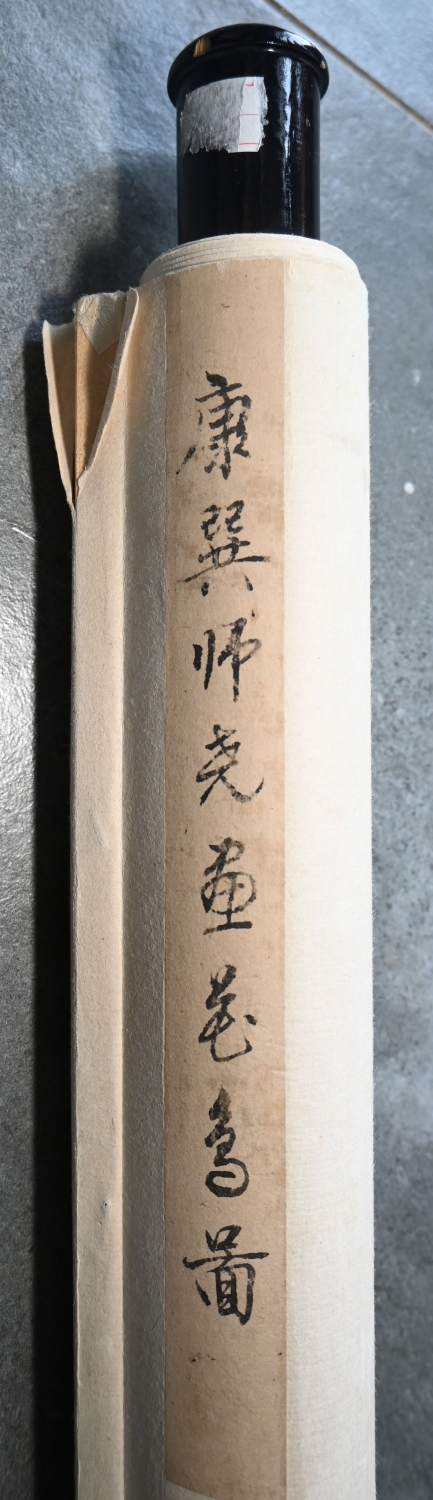 康巽师尧画花鸟图